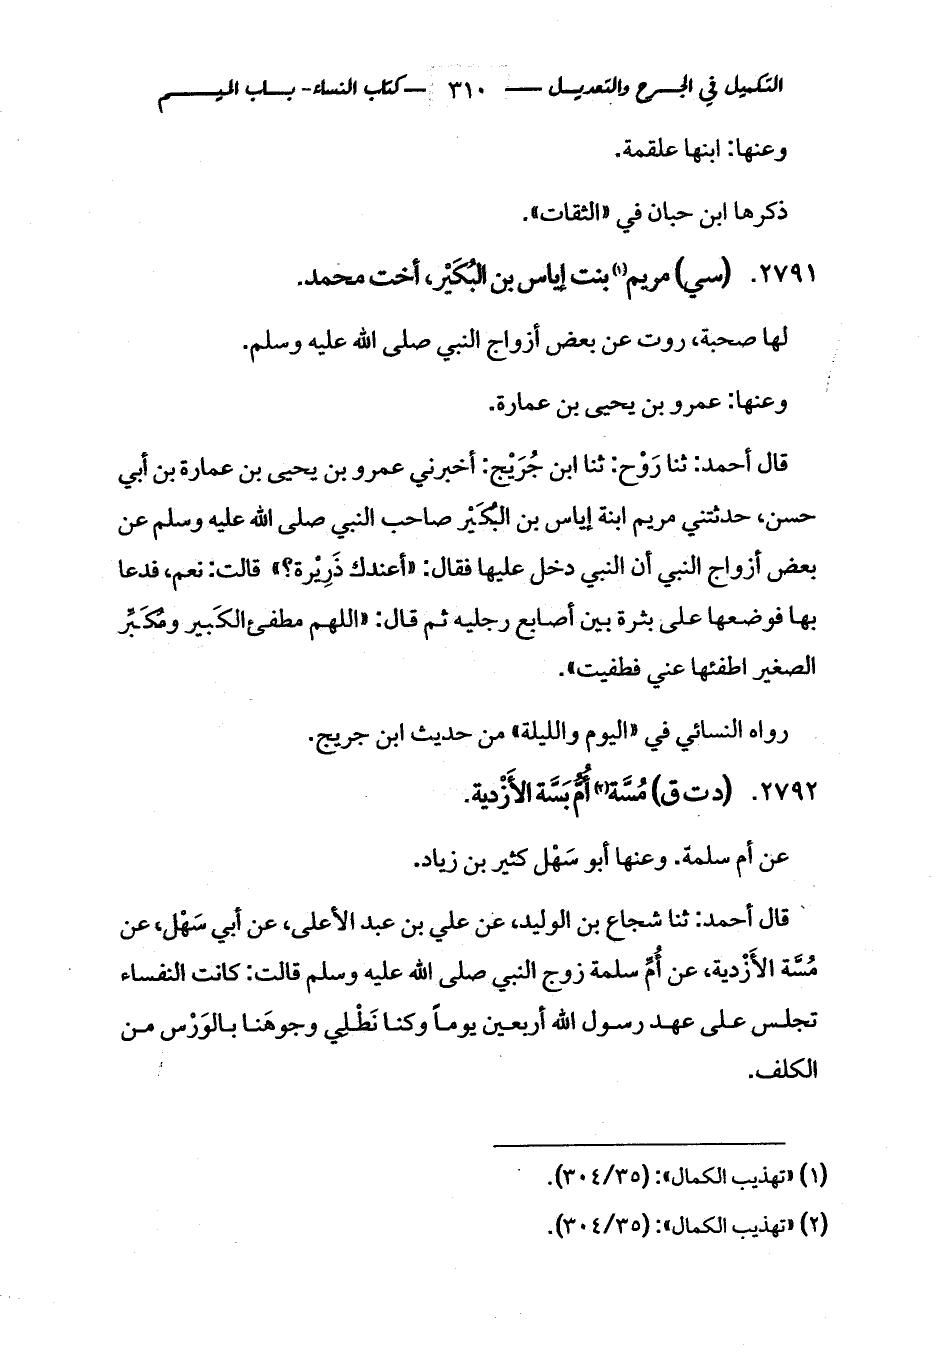 التكميل في الجرح والتعديل — ٣١٠ — كتاب النساء - باب الميم
وعنها: ابنها علقمة.
ذكرها ابن حبان في «الثقات».
٢٧٩١. (سي) مريم(١) بنت إياس بن البُكَيْر، أخت محمد.
لها صحبة، روت عن بعض أزواج النبي صلى الله عليه وسلم.
وعنها: عمرو بن يحيى بن عمارة.
قال أحمد: ثنا رَوْح: ثنا ابن جُرَيْج: أخبرني عمرو بن يحيى بن عمارة بن أبي
حسن، حدثتني مريم ابنة إياس بن البُكَيْر صاحب النبي صلى الله عليه وسلم عن
بعض أزواج النبي أن النبي دخل عليها فقال: «أعندك ذَرِيْرة؟» قالت: نعم، فدعا
بها فوضعها على بثرة بين أصابع رجليه ثم قال: «اللهم مطفئ الكَبير ومُكَبِّر
الصغير اطفئها عني فطفيت».
رواه النسائي في «اليوم والليلة» من حديث ابن جريج.
٢٧٩٢. (د ت ق) مُسَّة(٢) أُمُّ بَسَّة الأَزْدية.
عن أم سلمة. وعنها أبو سَهْل كثير بن زياد.
قال أحمد: ثنا شجاع بن الوليد، عن علي بن عبد الأعلى، عن أبي سَهْل، عن
مُسَّة الأَزْدية، عن أُمِّ سلمة زوج النبي صلى الله عليه وسلم قالت: كانت النفساء
تجلس على عهد رسول الله أربعين يوماً وكنا نَطْلِي وجوهَنا بالوَرْس من
الكلف.
(١) «تهذيب الكمال»: (٣٠٤/٣٥).
(٢) «تهذيب الكمال»: (٣٠٤/٣٥).